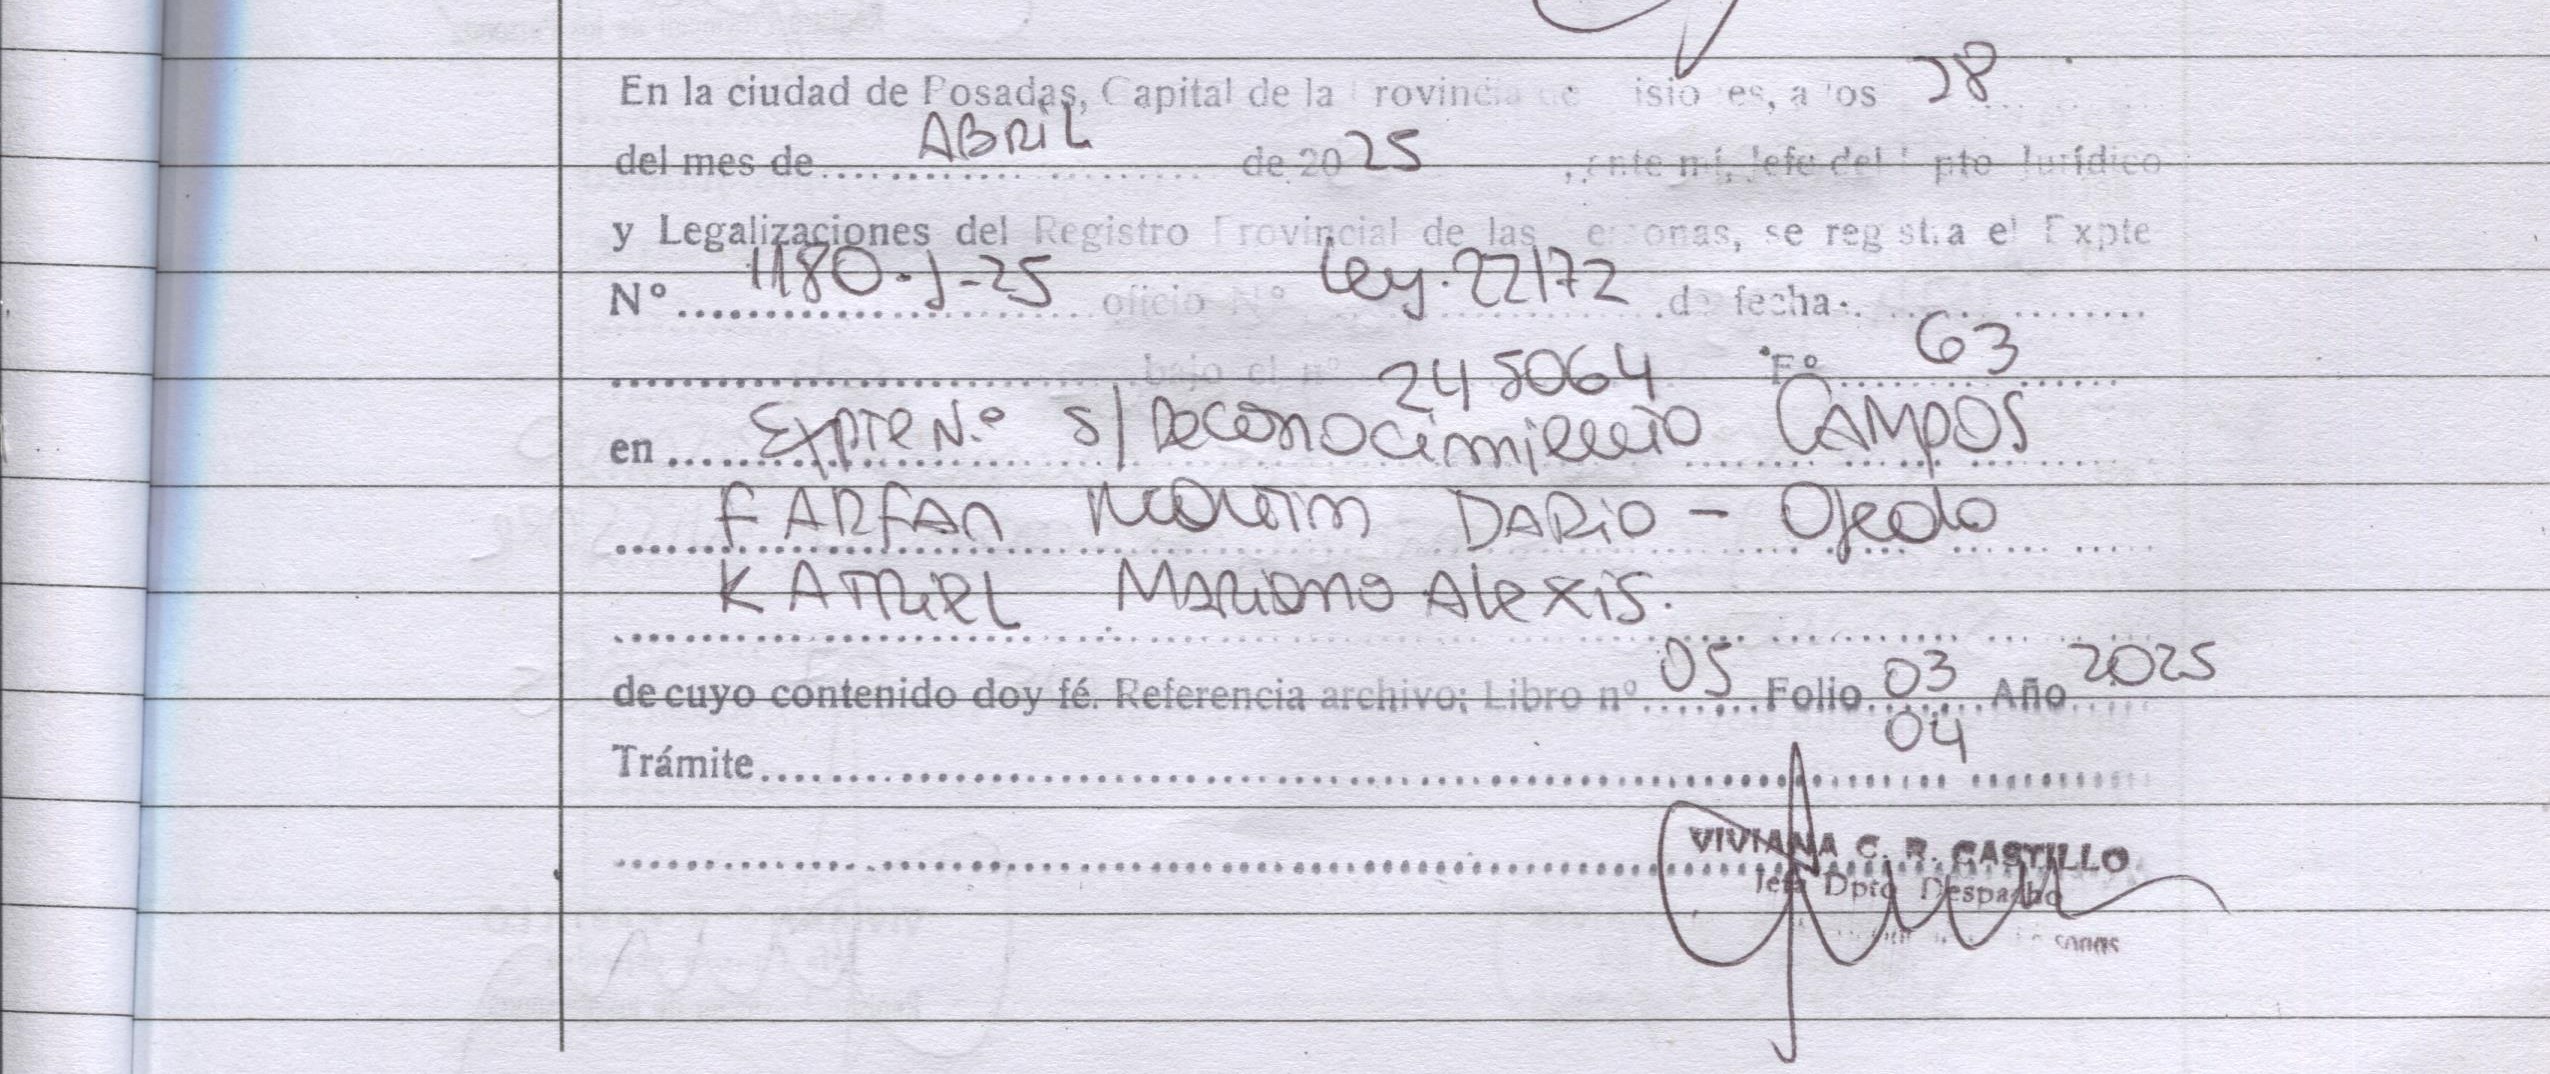 En la ciudad de Posadas, Capital de la Provincia de Misiones, a los 28
del mes de ABRIL de 2025, ante mí, Jefe del Dpto Jurídico
y Legalizaciones del Registro Provincial de las Personas, se registra el Expte
N° 1180-J-25 oficio N° Ley.22172 de fecha
bajo el n° 245064 F° 63
en Expte N.° s/ CAMPOS
FARFAN DARIO - Ojeda
KATRIEL MARIANO Alexis.
de cuyo contenido doy fé. Referencia archivo: Libro nº 05 Folio 03 Año 2025
04
Trámite
VIVIANA C. R. CASTILLO
Jefa Dpto Despacho